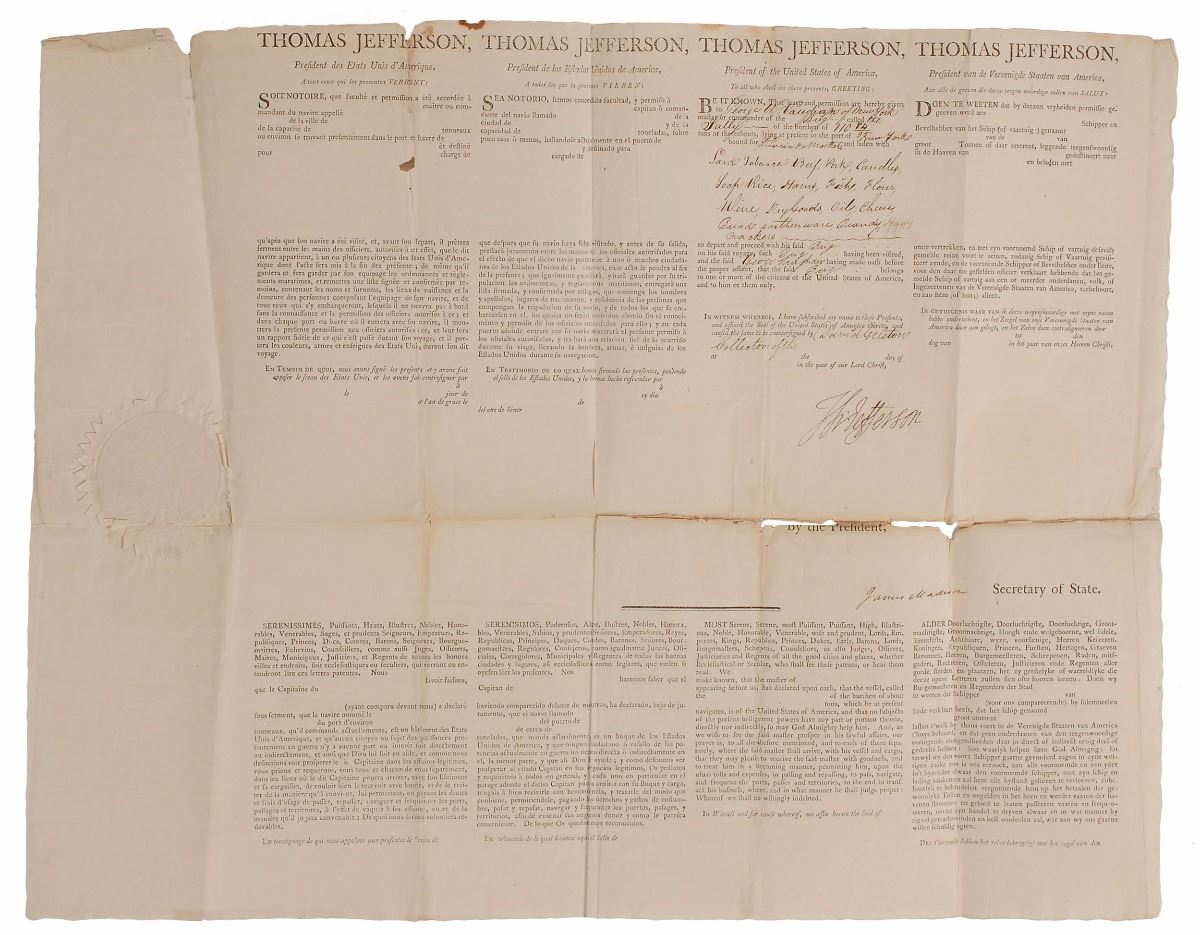 THOMAS JEFFERSON,
President des Etats Unis d'Amerique,
A tous ceux qui les presentes VERRONT:
SOIT NOTOIRE, que faculté et permission a été accordée à
maître ou com-
mandant du navire appellé
de la ville de
de la capacité de tonneaux
ou environ se trouvant présentement dans le port et havre de
et destiné
pour chargé de
qu'après que son navire a été visité, et, avant son départ, il prêtera
serment entre les mains des officiers, autorisés à cet effet, que le dit
navire appartient, à un ou plusieurs citoyens des Etats Unis d'Amé-
rique dont l'acte sera mis à la fin des présentes; de même qu'il
gardera et fera garder par son equipage les ordonnances et régle-
ments maratimes, et remettra une liste signée et confirmée par te-
moins, contenant les noms et surnoms, les lieux de naissance et la
demeure des personnes composant l'equipage de son navire, et de
tous ceux qui s'y embarqueront, lesquels il ne recevra pas à bord
sans la connaissance et la permission des officiers autorisés à ce; et
dans chaque port ou havre où il entrera avec son navire, il mon-
trera la présente permission aux officiers autorisés à ce, et leur fera
un rapport fidele de ce qui s'est passé durant son voyage, et il por-
tera les couleurs, armes et enseignes des Etats Unis, durant son dit
voyage.
EN TEMOIN DE QUOI, nous avons signé les presentes et y avons fait
apposer le sceau des Etats Unis, et les avons fait contresigner par
à
le jour de
à l'an de grace le
THOMAS JEFFERSON,
President de los Estados Unidos de America,
A todos los que la presente VIEREN:
SEA NOTORIO, hemos concedido facultad, y permiso à
capitan ò coman-
dante del navio llamado de a
ciudad de y de la
capacidad de toneladas, sobre
poco mas ò menos, hallandose actualmente en el puerto de
y destinado para
cargado de
que despues que su navio haya sido visitado, y antes de su salida,
prestará juramento entre las manos de los oficiales autorizados para
el efecto de que el dicho navio pertenece à uno ò muchos ciudada-
nos de los Estados Unidos de la America, cuio acto se pondra al fin
de la presente; que igualmente guardará, y hará guardar por su tri-
pulacion los ordenanzas, y reglamentos maritimos, entregará una
lista firmada, y confirmada por testigos, que contenga los nombres
y apellidos, lugares de nacimiento, y residencia de las personas que
compongan la tripulacion de su navio, y de todos los que se em-
barcasen en el, los quales no seran recibidos abordo sin el conoci-
miento y permiso de los oficiales autorizados para ello; y en cada
puerto adonde entrare con su navio mostrará el presente permiso à
los oficiales autorizados, y les hará una relacion fiel de lo ocurrido
durante su viage, llevando la bandera, armas, è insignias de los
Estados Unidos durante su navegacion.
EN TESTIMONIO DE LO QUAL hemos firmado los presentes, poniendo
el sello de los Estados Unidos, y la hemos hecho refrendar por
à
ey dia
de
del ano de Senor
THOMAS JEFFERSON,
President of the United States of America,
To all who shall see these presents, GREETING:
BE IT KNOWN, That leave and permission are hereby given
to George W. Vaughan of New York
master or commander of the Brig called the
Sally of the burthen of 110 84
tons or thereabouts, lying at present in the port of New York
bound for and laden with
Lard Tobacco Beef Pork, Candles,
Soap Rice, Hams, Fish, Flour,
Wine, Dry Goods, Oil, Cheese
earthenware, Brandy
Crackers
to depart and proceed with his said Brig
on his said voyage, such Brig having been visited,
and the said having made oath before
the proper officer, that the said Brig belongs
to one or more of the citizens of the United States of America,
and to him or them only.
IN WITNESS WHEREOF, I have subscribed my name to these Presents,
and affixed the Seal of the United States of America thereto, and
caused the same to be countersigned by David Gelston
Collector of the
at the day of
in the year of our Lord Christ,
Th: Jefferson
THOMAS JEFFERSON,
President van de Vereenigde Staaten van America,
Aan alle de geenen die deeze tegen woordige zullen zien SALUT:
DOEN TE WEETEN dat by deezen vryheiden permissie ge-
geeven werd aen
Schipper en
Bevelhebber van het Schip (of vaartuig) genaamt
van de van
groot Tonnen of daar omtrent, leggende teegenswoordig
in de Haaven van gedestineert naar
en belaaden met
omte vertrekken, en met zyn voornoemd Schip of Vaartuig desselfs
gemelde reise voort te zetten, zodanig Schip of Vaartuig gevisit-
teert zynde, en de voornoemde Schipper of Bevelhebber onder Eede,
voor den daar toe gestelden officier verklaart hebbende dat het ge-
melde Schip of vaartuig aan een or meerder onderdanen, volk, of
Ingezeetenen van de Vereenigde Staaten van America, toebehoort,
en aan hem (of hun;) alleen.
IN GETUIGENIS WAAR van deeze teegenswoordige met myne naam
hebbe ondertekent, en het Zeegel van onze Vereenigde Staaten van
America daar aan gehegt, en het Zelve doen contrasigneeren door
den
dag van in het jaar van onzen Heeren Christi,
By the President,
James Madison Secretary of State.
SERENISSIMES, Puissants, Hauts, Illustres, Nobles, Hono-
rables, Venerables, Sages, et prudents Seigneurs, Empereurs, Re-
publiques, Princes, Ducs, Comtes, Barons, Seigneurs, Bourgue-
maîtres, Echevins, Counseillers, comme aussi Juges, Officiers,
Maires, Municipaux, Justiciers, et Regents de toutes les bonnes
villes et endroits, soit ecclesiastiques ou seculiers, qui verront ou en-
tendront lire ces lettres patentes. Nous
savoir faisons,
que le Capitaine du
(ayant comparu devant nous) a déclaré
sous serment, que le navire nommé le
du port d'environ
tonneaux, qu'il commande actuellement, est un bâtiment des Etats
Unis d'Amerique, et qu'aucun citoyen ou sujet des puissances pre-
sentement en guerre n'y a aucune part ou interêt soit directement
soit indirectement, ainsi que Dieu lui soit en aide, et comme nous
desirerions voir prosperer le dit Capitaine dans ses affaires legitimes,
nous prions et requerons, vous tous et chacun de vous, séparément,
dans les lieux où le dit Capitaine pourra arriver, avec son bâtiment
et sa cargaison, de vouloir bien le recevoir avec bonté, et de le trai-
ter de la manière qu'il convient, lui permettant, en payant les droits
et frais d'usage de passer, repasser, naviguer et frequenter les ports,
passages et territoires, à l'effet de vaquer à ses affaires, ou et de la
maniére qu'il jugera convenable: De quoi nous serons volontiers re-
devables.
En temoignage de quoi nous apposons aux presentes le sceau de
SERENISIMOS, Poderosos, Altos, Ilustres, Nobles, Honora-
bles, Venerables, Sabios, y prudentes Señores, Emperadores, Reyes,
Republicas, Principes, Duques, Condes, Barones, Señores, Bour-
gomaestres, Regidores, Consejeros, como igualmente Jueces, Ofi-
ciales, Corregidores, Municipales y Regentes de todas las buenas
ciudades y lugares, asi ecclesiasticos como seglares, que viesen ò
oyesen léer los presentes. Nos
hacemos saber que el
Capitan de
haviendo comparecido delante de nosotros, ha declarado, bajo de ju-
ramento, que el navio llamado
del puerto de
de cerca de
toneladas, que manda actualmente es un buque de los Estados
Unidos de America, y que ningun ciudadano ò vasallo de las po-
tencias actualmente en guerra no tienen directa ò indirectamente en
el, la menor parte, y que asi Dios le ayude; y como deseamos ver
prosperar el dicho Capitan en sus negocios legitimos, Os pedimos
y requirimos à todos en general, y cada uno en particular en el
parage adonde el dicho Capitan pueda arribar con su buque y cargo,
tengais à bien recivirle con benevolencia, y tratarle del modo que
conviene, permitiendole, pagando los derechos y gastos de costum-
bre, pasar y repasar, navegar y frequentar los puertos, pasages, y
territorios, afin de evacuar sus negocios donde y como le parezca
conveniente. De lo que Os quedaremos reconocidos.
En testimonio de lo qual fixamos aqui el sello de
MOST Serene, Serene, most Puissant, Puissant, High, Illustri-
ous, Noble, Honorable, Venerable, wise and prudent, Lords, Em-
perors, Kings, Republics, Princes, Dukes, Earls, Barons, Lords,
Burgomasters, Schepens, Counsellors, as also Judges, Officers,
Justiciaries and Regents of all the good cities and places, whether
Ecclesiastical or Secular, who shall see these patents, or hear them
read. We
make known, that the master of
appearing before us, has declared upon oath, that the vessel, called
the of the burthen of about
tons, which he at present
navigates, is of the United States of America, and that no subjects
of the present belligerent powers have any part or portion therein,
directly nor indirectly, so may God Almighty help him. And, as
we wish to see the said master prosper in his lawful affairs, our
prayer is, to all the before mentioned, and to each of them sepa-
rately, where the said master shall arrive, with his vessel and cargo,
that they may please to receive the said master with goodness, and
to treat him in a becoming manner, permitting him, upon the
usual tolls and expenses, in passing and repassing, to pass, navigate,
and frequent the ports, passes and territories, to the end to trans-
act his business, where, and in what manner he shall judge proper:
Whereof we shall be willingly indebted.
In Witness and for cause whereof, we affix hereto the Seal of
ALDER Doorluchtigste, Doorluchtigste, Doorluchtige, Groot-
machtigste, Grootmachtige, Hoogh ende welgeboorne, wel Edele,
Zeentfeste, Achtbaare, wyze, voorzienige, Heeren Keizeren,
Koningen, Republiquen, Princen, Fursten, Hertogen, Graeven
Baronnen, Heeren, Burgemeesteren, Scheepenen, Raden, mits-
gaders, Rechteren, Officieren, Justicieren ende Regenten aller
goede steden en plaatsen, het zy geestelyke of waereldlyke die
deeze opene Letteren zullen zien ofte hooren leezen: Doen wy
Burgermeesteren en Regeerders der Stad
te weeten dat Schipper van
(voor ons compareerende) by solemneelen
Eede verklart heeft, dat het schip genaamd
groot omtrent
lasten t welk hy thans voert in de Vereenigde Staaten van America
t'huys behoort, en dat geen onderdanen van den teegenwoordige
oorlogende mogendheden daar in direct of indirect eenig deel of
gedeelte hebben: Soo waarlyk helpen hem God Almagtig: En
terwyl wy den voortz Schipper gaarne gevordert zagen in zyne wet-
tigen zaake zoo is ons verzoek, aan alle voornoemde en een yder
in't byzonder alwaar den voornoemde schipper, met zyn schip en
lading ankomen hem alle bystand gelieven te verleenen, behoorlyk te behandelen vergunnende hem op het betaalen der ge-
woonlyke Tollen en ongelden in het heen en weeder vaaren der ha-
venen stroomen en gebied te laaten passeeren vaaren en frequen-
teeren, zyn handel te dryven alwaar en in wat manier hy
zignal geraaden vinden en best oordeelen zal, waar aan wy ons gaarne
willen schuldig agten,
Des t'oirconde hebben het zelve bekragtigt met het zegel van den